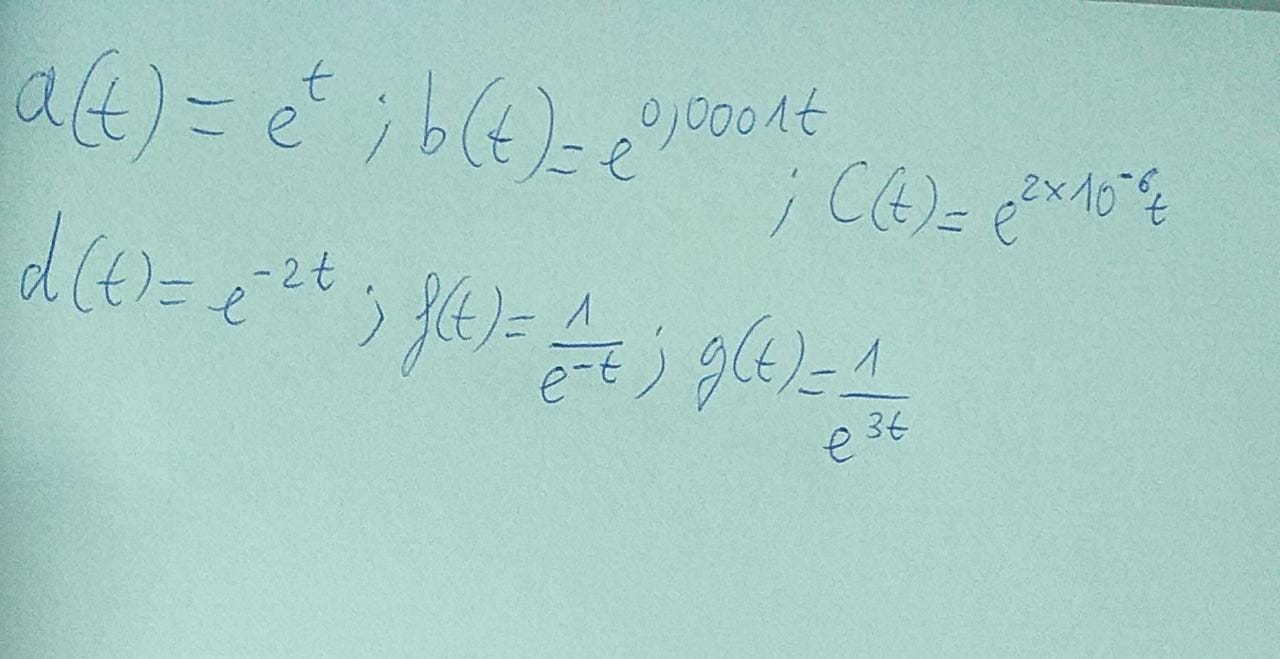 a(t) = e^t ; b(t) = e^{0,0001t} ; C(t) = e^{2×10^{-6}t}
d(t) = e^{-2t} ; f(t) = \frac{1}{e^{-t}} ; g(t) = \frac{1}{e^{3t}}